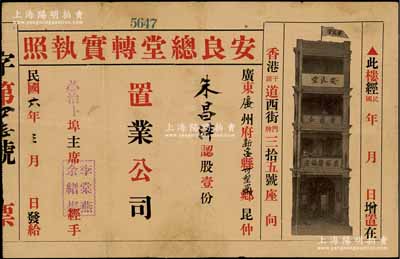 上海陽明拍賣
5647
安良總堂轉實執照
▲此樓經民國 年 月 日增置在
香港干諾道西街門牌三拾五號座 向
廣東廣州府新寧縣 鄉 昆仲
朱昌 認股壹份
置業公司
埠主席 李棠燕 余緒 經手
民國六年三月 日發給
字第 號 票
上海陽明拍賣